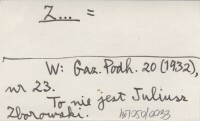 Z... =
W: Gaz. Podh. 20 (1932),
nr 23.
To nie jest Juliusz
Zborowski.